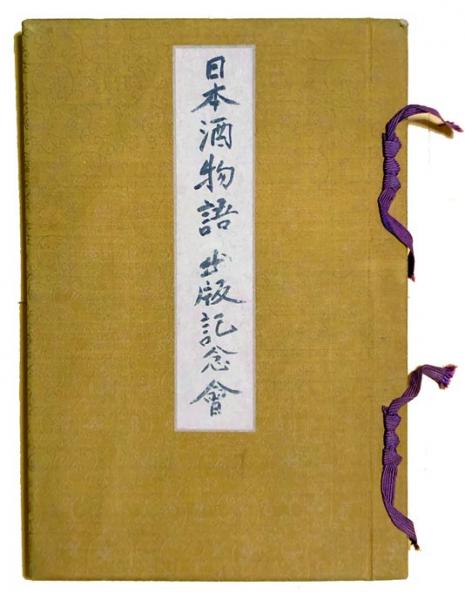 日本酒物語 出版記念會